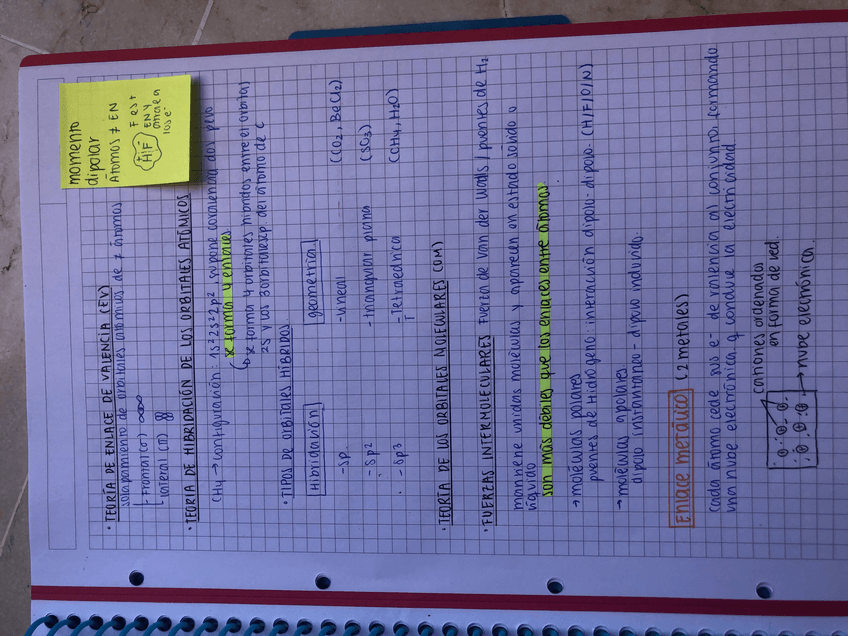 momento
dipolar
Átomos ≠ EN
H F
F es +
EN y
atrae a
los e-
· TEORÍA DE ENLACE DE VALENCIA (EV)
solapamiento de orbitales atómicos de ≠ átomos
- Frontal (σ)
- lateral (π)
· TEORÍA DE HIBRIDACIÓN DE LOS ORBITALES ATÓMICOS
CH4 → configuración: 1s² 2s² 2p², supone covalencia dos pero
x forma 4 enlaces
x forma 4 orbitales híbridos entre el orbital
2s y los 3 orbitales p. del átomo de C
· TIPOS DE ORBITALES HÍBRIDOS
Hibridación geometría
- sp. - lineal (CO2, BeCl2)
- sp2 - triangular plana (SO3)
- sp3 - Tetraédrica (CH4, H2O)
· TEORÍA DE LOS ORBITALES MOLECULARES (OM)
· FUERZAS INTERMOLECULARES Fuerza de Van der Walls / puentes de H2
mantiene unidas moléculas y aparecen en estado sólido o
líquido
son más débiles que los enlaces entre átomos
→ moléculas polares
puentes de Hidrógeno: interacción dipolo-dipolo. (H/F/O/N)
→ moléculas apolares
dipolo instantaneo - dipolo inducido.
Enlace metálico (2 metales)
Cada átomo cede sus e- de valencia al conjunto, formando
una nube electrónica q conduce la electricidad
cationes ordenados
en forma de red.
→ nube electrónica.